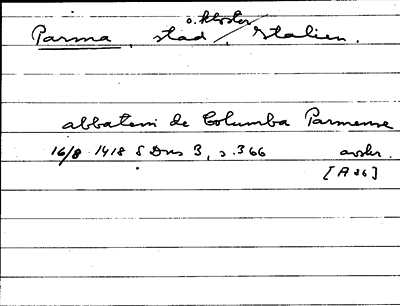 Parma, stad o. kloster, Italien.
abbatem de Columba Parmense
16/8 1418 S Dns 3, s. 366 avskr.
[A 26]